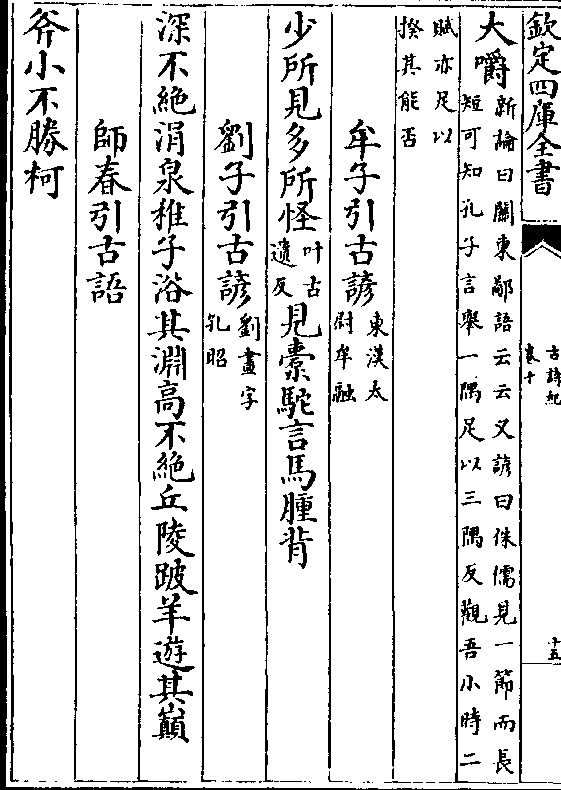 欽定四庫全書
古詩紀
卷十
十五
大嚼新論曰關東鄙語云云又諺曰侏儒見一節而長
短可知孔子言舉一隅足以三隅反觀吾小時二
賦亦足以
揆其能否
牟子引古諺東漢太
尉牟融
少所見多所怪叶古
遺反見橐駝言馬腫背
劉子引古諺劉晝字
孔昭
深不絶涓泉稚子浴其淵高不絶丘陵跛羊遊其巔
師春引古語
斧小不勝柯